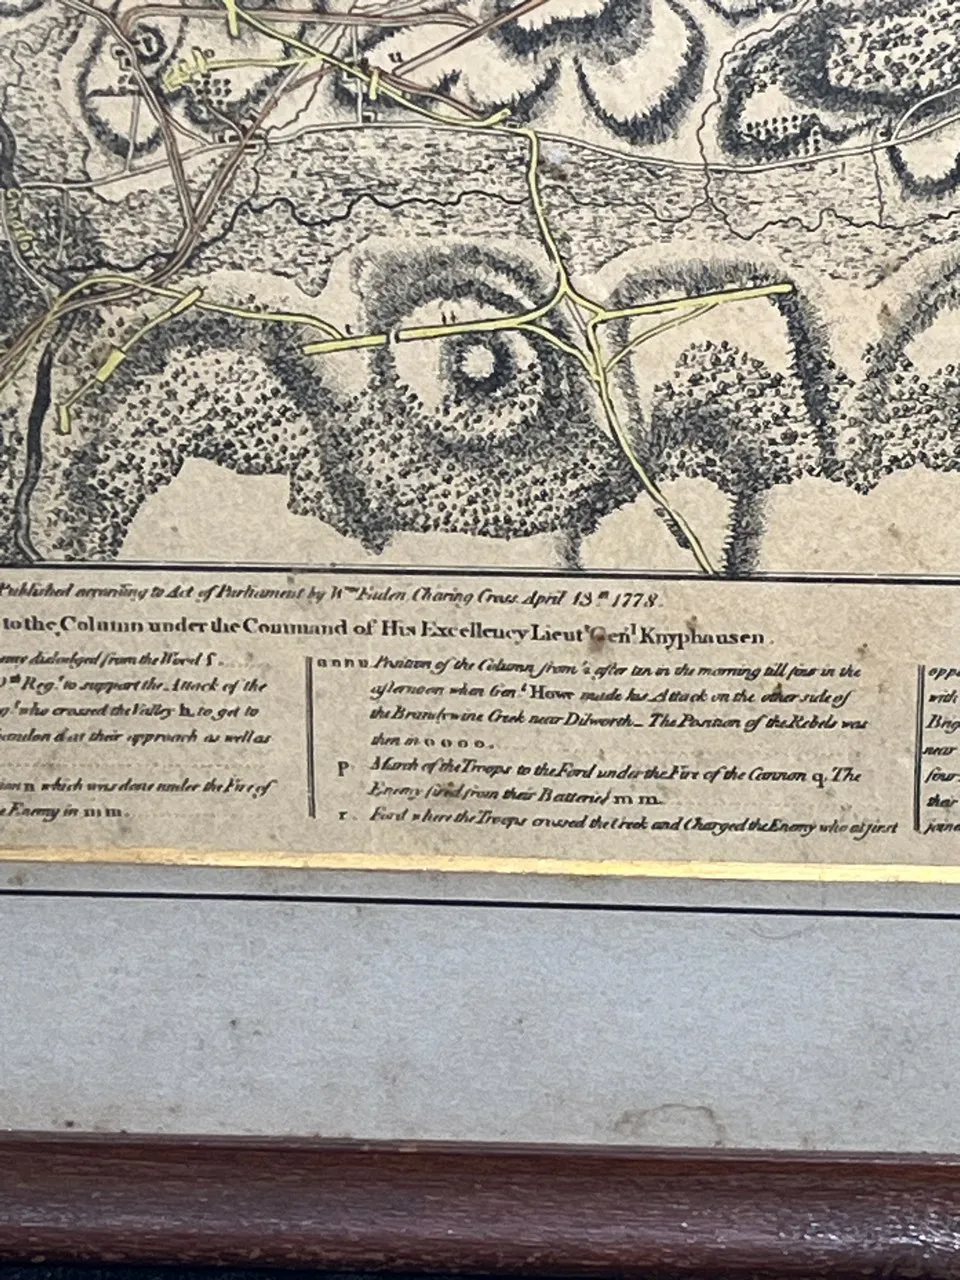 Published according to Act of Parliament by Wm Faden Charing Cross April 13th 1778.
to the Column under the Command of His Excellency Lieut Genl Knyphausen.
were dislodged from the Wood f.
Regt to support the Attack of the
who crossed the Valley h. to get to
at their approach as well as
n which was done under the Fire of
Enemy in m m.
n n n n Position of the Column from after ten in the morning till four in the
afternoon when Genl Howe made his Attack on the other side of
the Brandywine Creek near Dilworth_ The Position of the Rebels was
then in o o o o.
p March of the Troops to the Ford under the Fire of the Cannon q. The
Enemy fired from their Batteries m m.
r. Ford where the Troops crossed the Creek and Charged the Enemy who at first
with
near
their